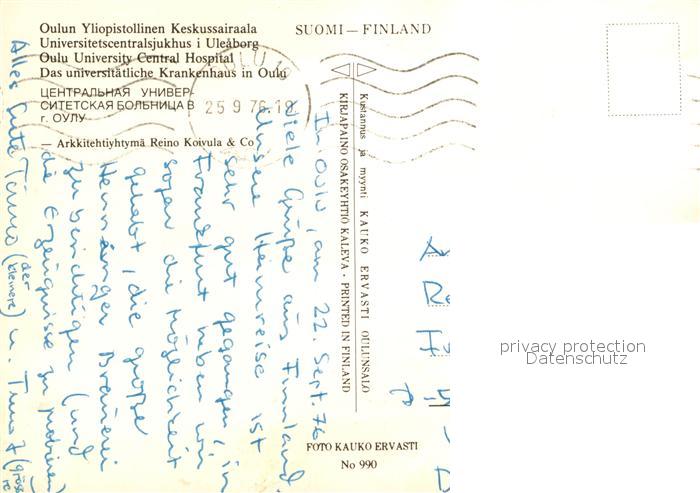 Oulun Yliopistollinen Keskussairaala
Universitetscentralsjukhus i Uleåborg
Oulu University Central Hospital
Das universitätliche Krankenhaus in Oulu
ЦЕНТРАЛЬНАЯ УНИВЕР-
СИТЕТСКАЯ БОЛЬНИЦА В
г. ОУЛУ
— Arkkitehtiyhtymä Reino Koivula & Co
SUOMI — FINLAND
OULU
25 9 76
Kustannus ja myynti KAUKO ERVASTI OULUNSALO
KIRJAPAINO OSAKEYHTIÖ KALEVA · PRINTED IN FINLAND
In Oulu, am 22. Sept. 76
Viele Grüße aus Finnland.
Unsere Heimreise ist
sehr gut gegangen, in
Frankfurt haben wir
sogar die Möglichkeit
gehabt, die große
Henninger Brauerei
zu besichtigen (und
die Erzeugnisse zu probieren)
Alles Gute Timo (der kleinere) u. Timo (grössere)
FOTO KAUKO ERVASTI
No 990
privacy protection
Datenschutz